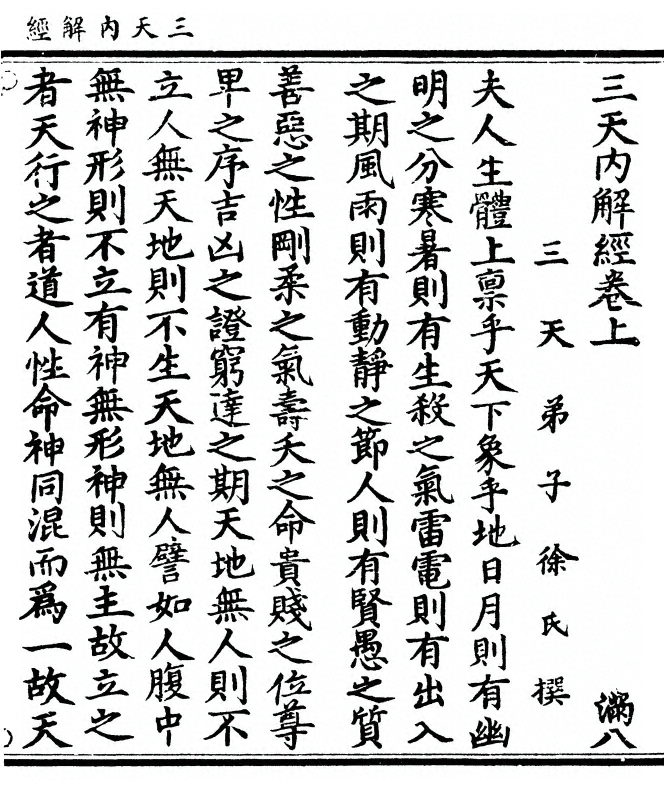 三天內解經
三天內解經卷上 滿八
三天弟子徐氏撰
夫人生體上禀乎天下象乎地日月則有幽
明之分寒暑則有生殺之氣雷電則有出入
之期風雨則有動靜之節人則有賢愚之質
善惡之性剛柔之氣壽夭之命貴賤之位尊
卑之序吉凶之證窮達之期天地無人則不
立人無天地則不生天地無人譬如人腹中
無神形則不立有神無形神則無主故立之
者天行之者道人性命神同混而爲一故天